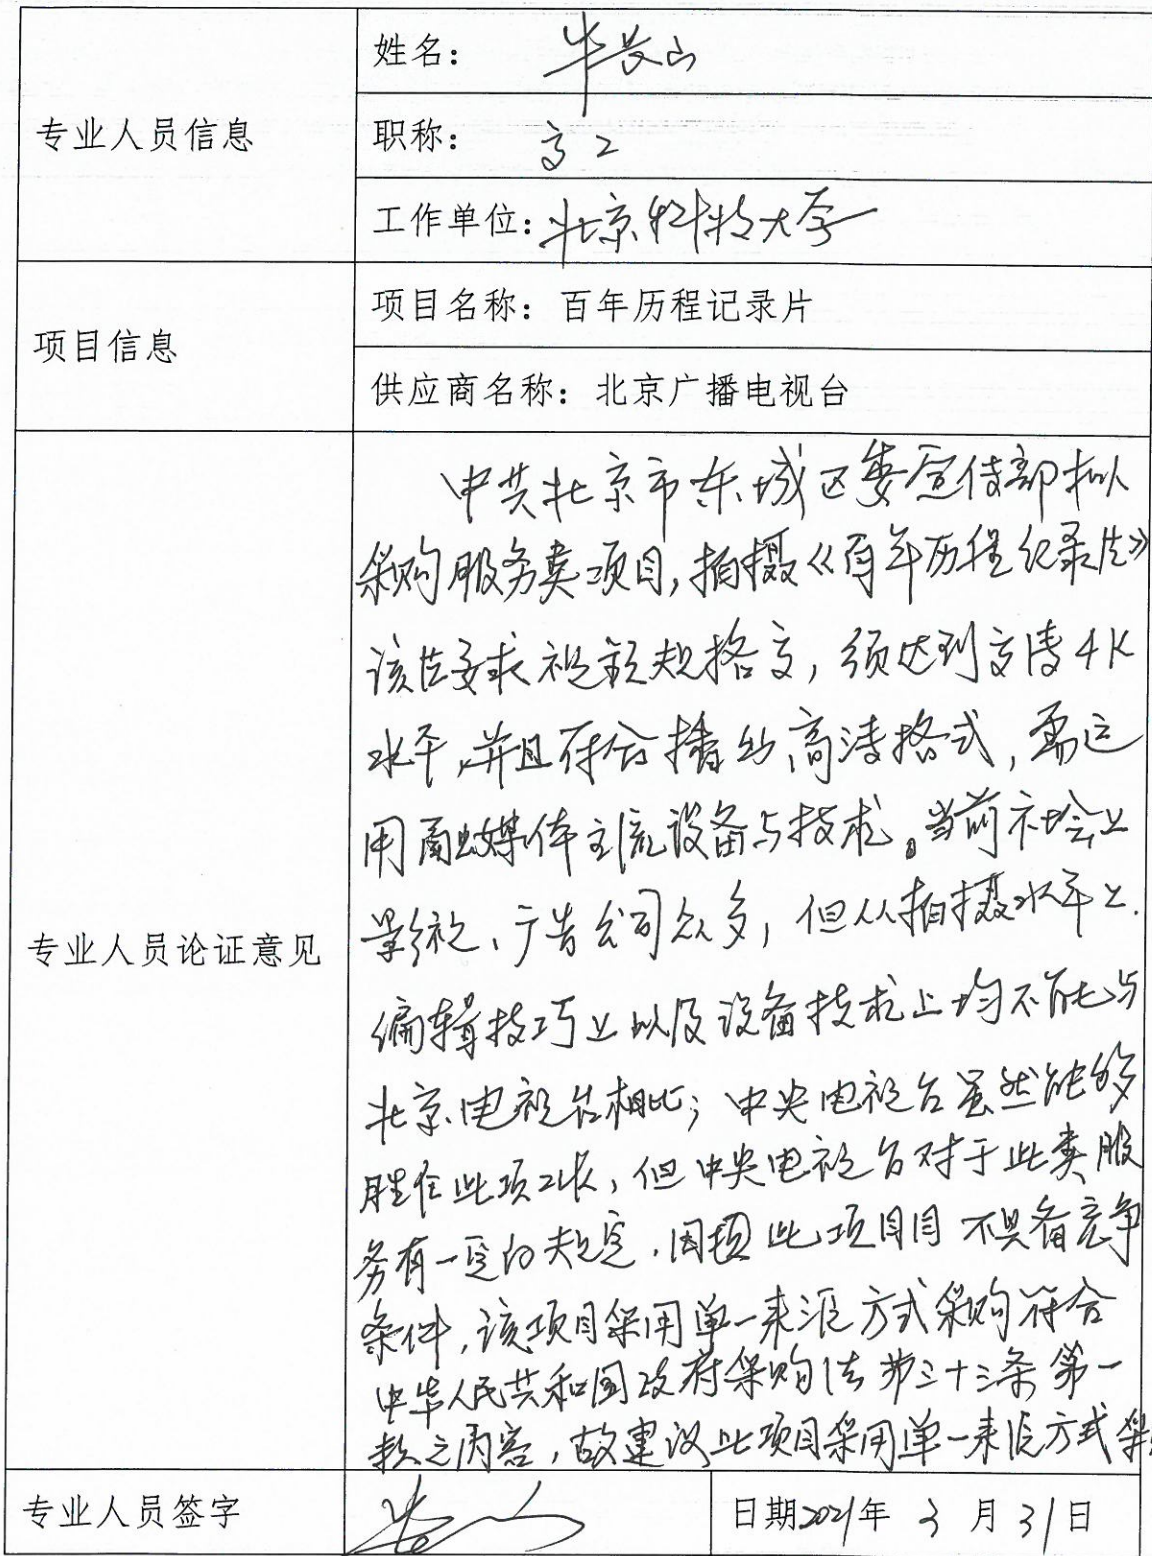 专业人员信息
姓名: 牛长山
职称: 高工
工作单位: 北京科技大学
项目信息
项目名称: 百年历程记录片
供应商名称: 北京广播电视台
专业人员论证意见
中共北京市东城区委宣传部拟
采购服务类项目,拍摄《百年历程纪录片》
该片要求视频规格高,须达到高清4K
水平,并且符合播出高清格式,需运
用融媒体主流设备与技术。当前社会上
影视、广告公司众多,但从拍摄水平上.
编辑技巧上以及设备技术上均不能与
北京电视台相比;中央电视台虽然能够
胜任此项工作,但中央电视台对于此类服
务有一定的规定.因此项目不具备竞争
条件,该项目采用单一来源方式采购符合
中华人民共和国政府采购法第三十三条第一
款之内容,故建议此项目采用单一来源方式采
专业人员签字
日期2021年 3 月 31日